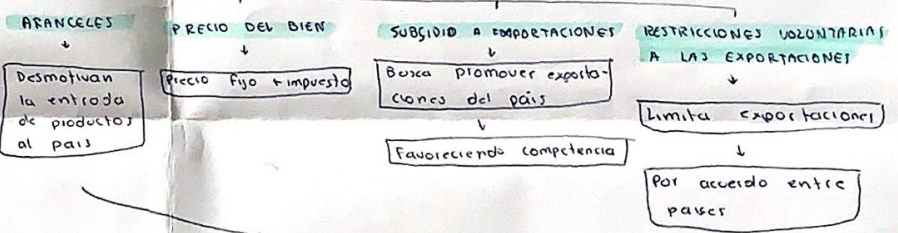 ARANCELES
Desmotivan
la entrada
de productos
al pais
PRECIO DEL BIEN
Precio fijo + impuesto
SUBSIDIO A EXPORTACIONES
Busca promover exporta-
ciones del país
Favoreciendo competencia
RESTRICCIONES VOLUNTARIAS
A LAS EXPORTACIONES
Limita exportaciones
Por acuerdo entre
paises